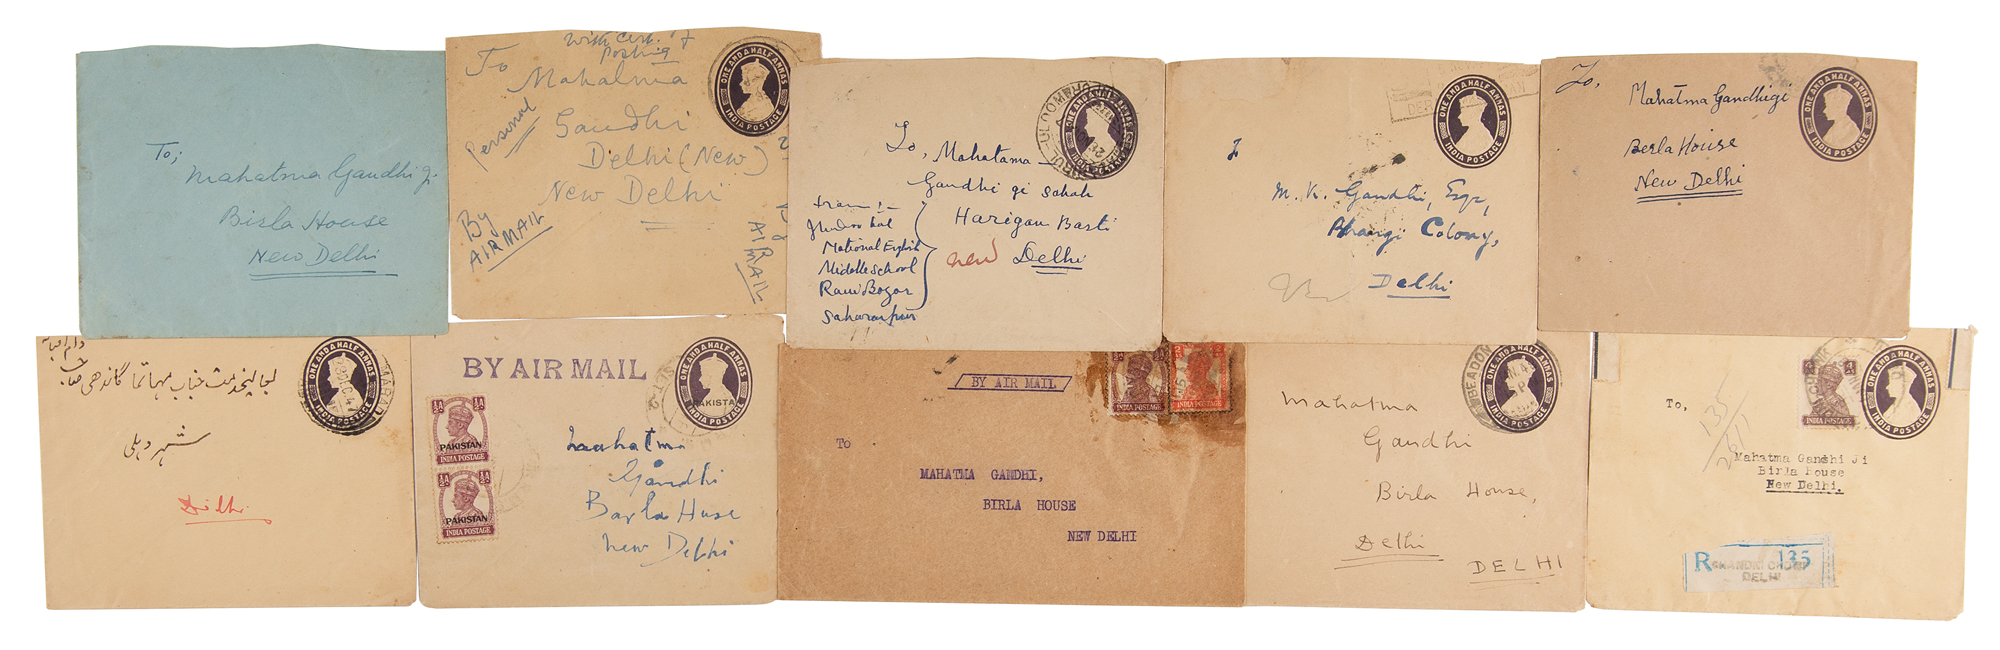 To;
Mahatma Gandhi ji
Birla House
New Delhi
With Cert. of
Posting
To
Mahatma
Gandhi
Delhi (New)
New Delhi
Personal
By
AIR MAIL
AIR
MAIL
ONE AND A HALF ANNAS
INDIA POSTAGE
To, Mahatama
Gandhi gi sahab
Harigan Basti
new Delhi
from :-
National English
Middle School
Saharanpur
ONE AND A HALF ANNAS
M. K. Gandhi, Esqr,
Bhangi Colony,
Delhi
ONE AND A HALF ANNAS
INDIA POSTAGE
To,
Mahatma Gandhigi
Berla House
New Delhi
ONE AND A HALF ANNAS
INDIA POSTAGE
جناب مہاتما گاندھی صاحب
شہر دہلی
Dilhi
ONE AND A HALF ANNAS
INDIA POSTAGE
BY AIR MAIL
ONE AND A HALF ANNAS
PAKISTAN
INDIA POSTAGE
PAKISTAN
INDIA POSTAGE
PAKISTAN
INDIA POSTAGE
Mahatma
Gandhi
Barla Huse
New Delhi
BY AIR MAIL
INDIA POSTAGE
INDIA POSTAGE
To
MAHATMA GANDHI,
BIRLA HOUSE
NEW DELHI
BEADON
Mahatma
Gandhi
Birla House,
Delhi
DELHI
INDIA POSTAGE
To,
135
Mahatma Gandhi Ji
Birla House
New Delhi.
R 135
CHANDNI CHOWK
DELHI